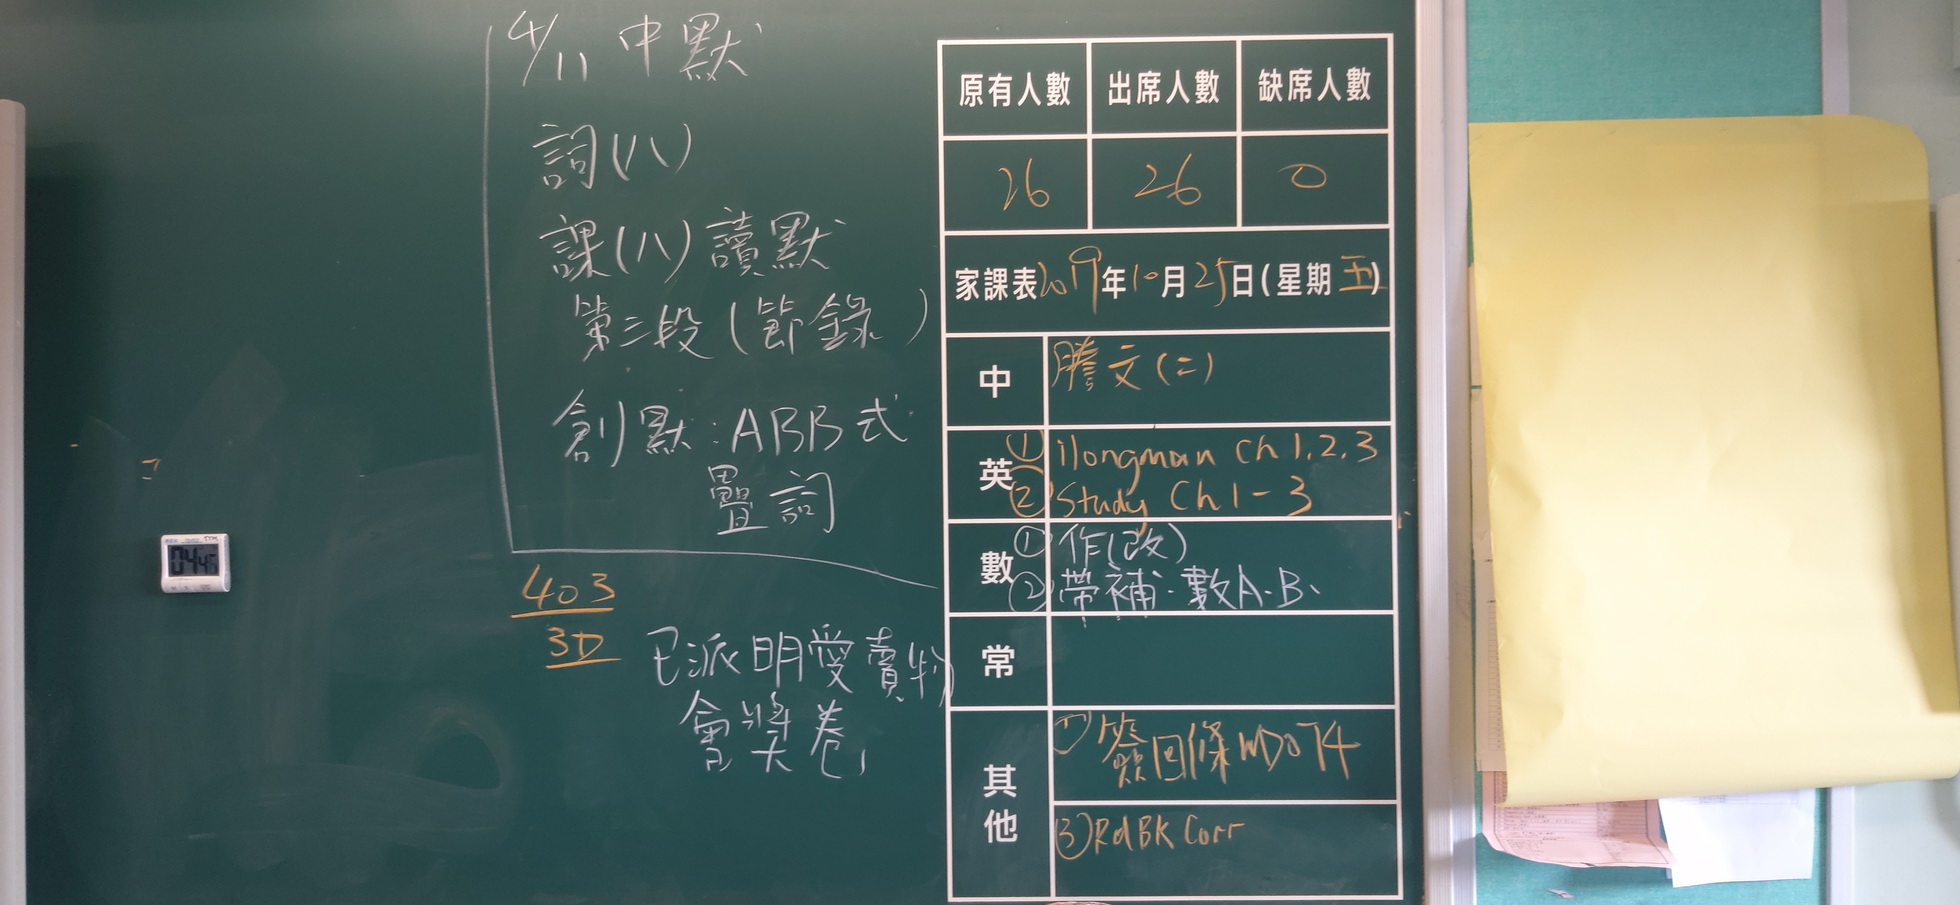 4/11 中默
詞(八)
課(八)讀默
第三段(節錄)
創默:ABB式
疊詞
403
3D
已派明愛賣物
會獎卷
原有人數 出席人數 缺席人數
26 26 0
家課表2019年10月25日(星期五)
中 謄文(二)
英 ① ilongman Ch 1,2,3
② Study Ch 1-3
數 ① 作(改)
② 帶補.數A.B.
常
其他 ① 簽回條MD074
③ RdBK Corr